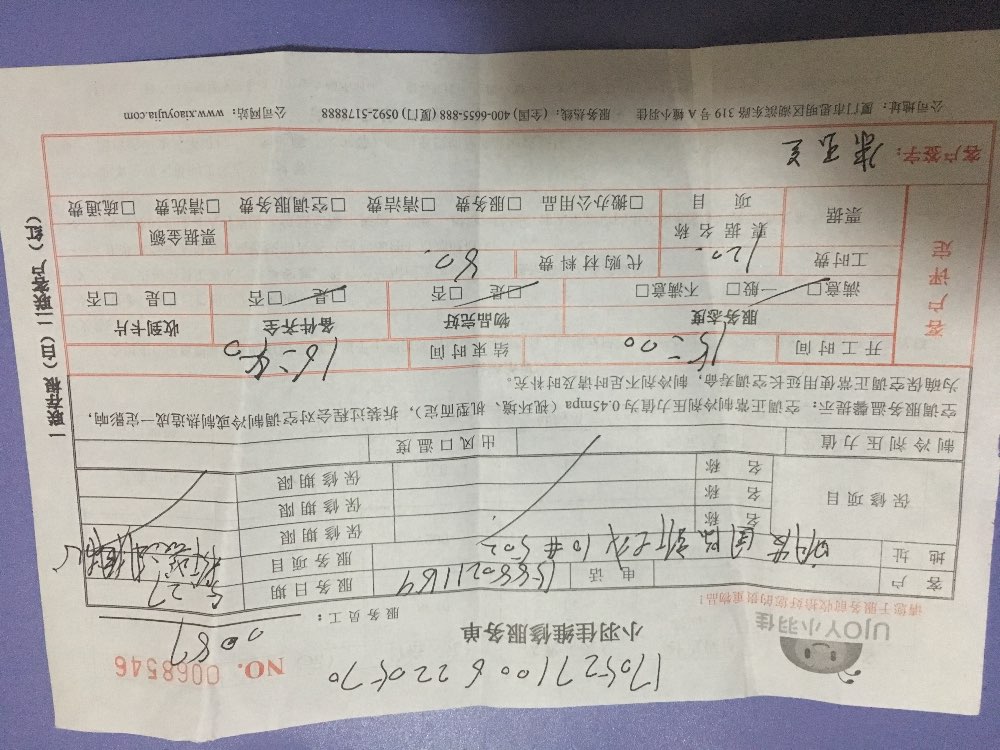 1705271006220570
UJOY小羽佳
小羽佳维修服务单
NO. 0068546
请您于服务前收拾好您的贵重物品!
服务员工: 0087
客 户 电 话 服务日期 5.27
地 址 10#502 服务项目
保修项目 名 称 保修期限
名 称 保修期限
名 称 保修期限
制冷剂压力值 出风口温度
空调服务温馨提示: 空调正常制冷剂压力值为0.45mpa(视环境、机型而定), 拆装过程会对空调制冷或制热造成一定影响,
为确保空调正常使用延长空调寿命, 制冷剂不足时请及时补充。
开工时间 15:00 结束时间 16:40
客户评定
服务态度 物品完好 备件齐全 收到卡片
满意□ 一般□ 不满意□ □是 □否 □是 □否 □是 □否
工时费 120. 代购材料费 80.
票据 票据名称 票据金额
项 目 □搬办公用品 □服务费 □清洁费 □空调服务费 □清洗费 □疏通费
客户签字:
公司地址: 厦门市思明区湖滨东路319号A幢小羽佳 服务热线: (全国) 400-6655-888 (厦门) 0592-5178888 公司网站: www.xiaoyujia.com
一联存根(白)二联客户(红)